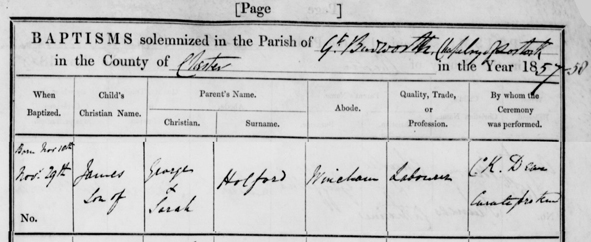 [Page
BAPTISMS solemnized in the Parish of Gt. Budworth, Chaplry of
in the County of Chester in the Year 1857-58
When Baptized.
Child's Christian Name.
Parent's Name.
Christian.
Surname.
Abode.
Quality, Trade, or Profession.
By whom the Ceremony was performed.
Born Nov 10th
Nov. 29th
No.
James
Son of
George
&
Sarah
Holford
Wincham
Labourer
C. K. Dean
Curate